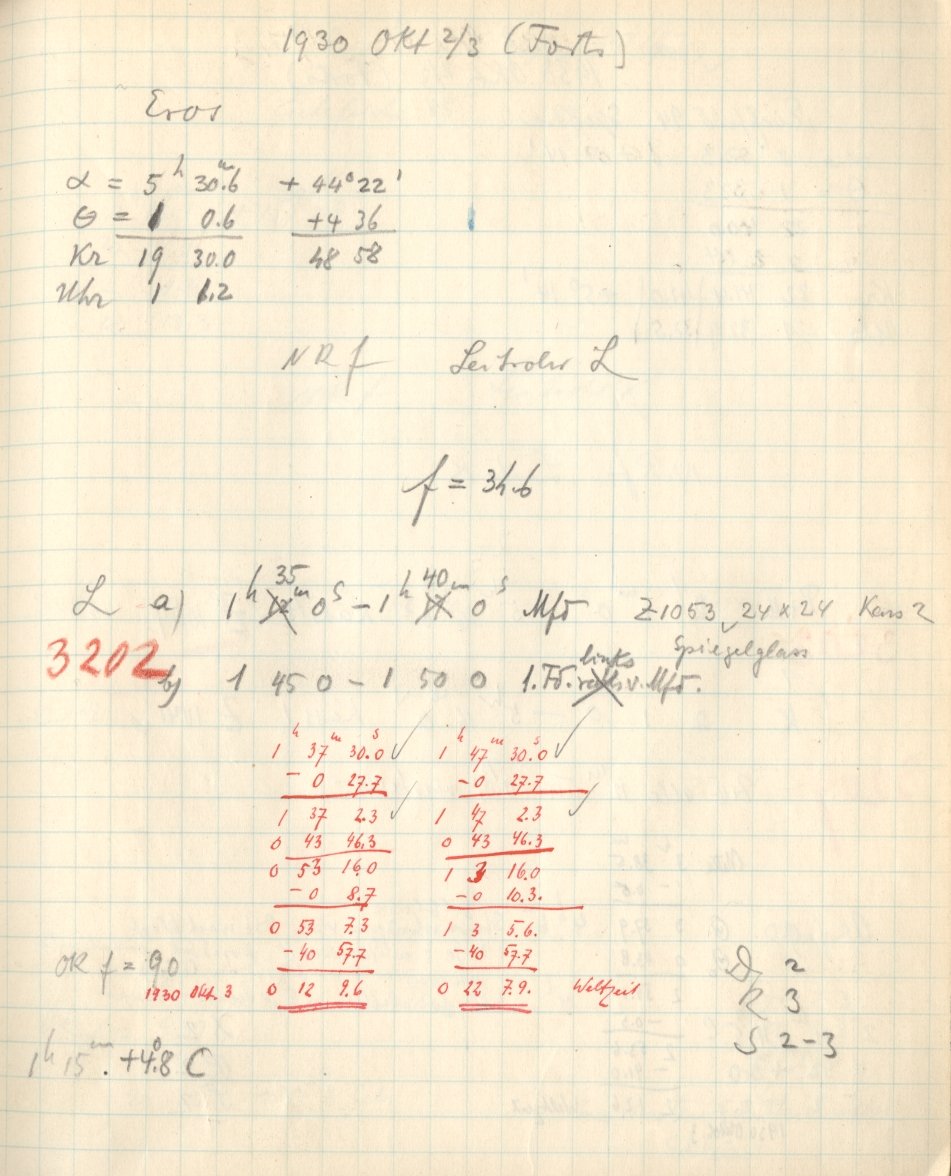 1930 Okt 2/3 (Forts)
Eros
α = 5h 30m.6 + 44°22'
θ = 1 0.6 +4 36
Kr 19 30.0 48 58
Uhr 1 1.2
NRf Leitrohr L
f = 34.6
L a) 1h 35m 0s – 1h 40m 0s Mfd Z1053 24 x 24 Kass 2
Spiegelglass
3202 b) 1 45 0 – 1 50 0 1. Fd. links v. Mfd.
1h 37m 30.0s 1h 47m 30.0s
– 0 27.7 – 0 27.7
1 37 2.3 1 47 2.3
0 43 46.3 0 43 46.3
0 53 16.0 1 3 16.0
– 0 8.7 – 0 10.3.
0 53 7.3 1 3 5.6.
– 40 57.7 – 40 57.7
OK f = 90 2
1930 Okt. 3 0 12 9.6 0 22 7.9. Weltzeit R 3
S 2–3
1h 15m. +4°.8 C